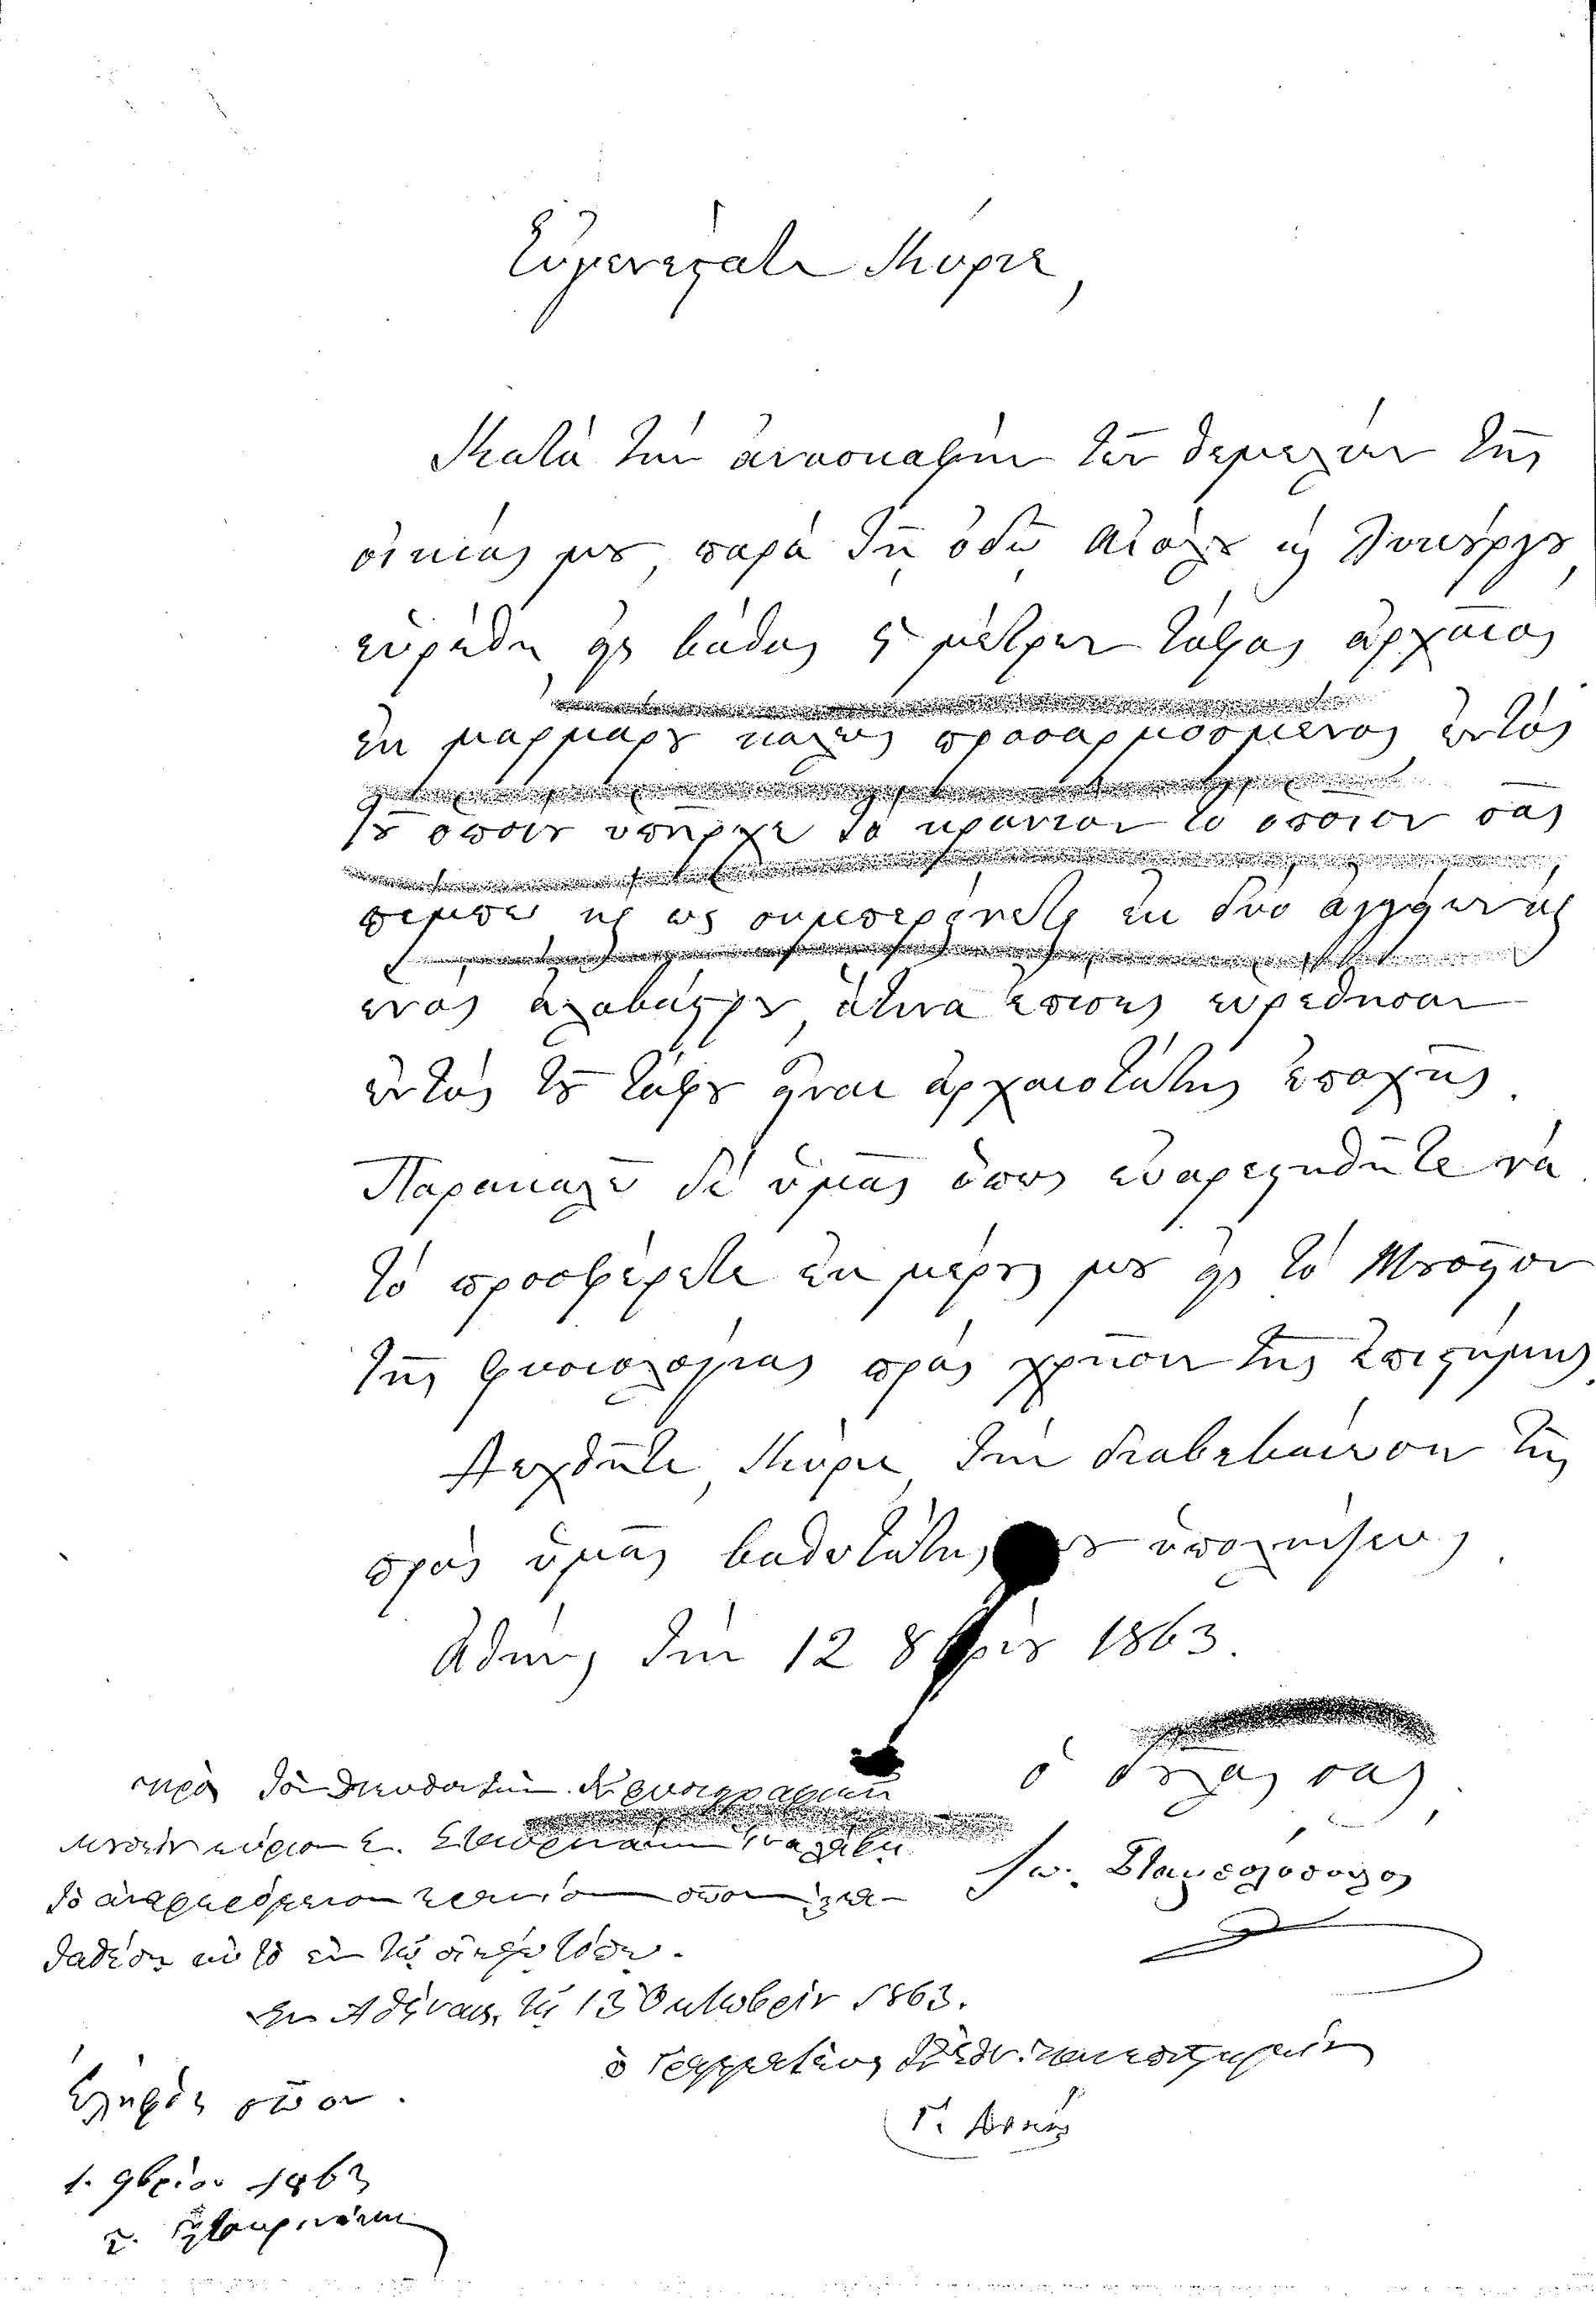 Εὐγενέστατε Κύριε,
Κατὰ τὴν ἀνασκαφὴν τῶν θεμελίων τῆς
οἰκίας μου, παρὰ τῇ ὁδῷ Αἰόλου καὶ Λυκούργου,
εὑρέθη εἰς βάθος 5 μέτρων τάφος ἀρχαῖος
ἐκ μαρμάρου καλῶς προσαρμοσμένος ἐντὸς
τοῦ ὁποίου ὑπῆρχε τὸ κρανίον τὸ ὁποῖον σᾶς
πέμπω καὶ ὡς συμπεραίνεται ἐκ δύο ἀγγείων καὶ
ἑνὸς ἀλαβάστρου, ἅτινα ἐπίσης εὑρέθησαν
ἐντὸς τοῦ τάφου εἶναι ἀρχαιοτάτης ἐποχῆς.
Παρακαλῶ δὲ ὑμᾶς ὅπως εὐαρεστηθῆτε νὰ
τὸ προσφέρετε ἐκ μέρους μου εἰς τὸ Μουσεῖον
τῆς φυσιολογίας πρὸς χρῆσιν τῆς ἐπιστήμης.
Δεχθῆτε, Κύριε, τὴν διαβεβαίωσιν τῆς
πρὸς ὑμᾶς βαθυτάτης μου ὑπολήψεως.
Ἀθήνῃσι τὴν 12 8βρίου 1863.
ὁ δοῦλος σας,
Ἰω. Σταμελόπουλος
πρὸς τὸν διευθυντὴν τοῦ φυσιογραφικοῦ
μουσείου κύριον Ἡ. Μητσόπουλον ἵνα λάβῃ
τὸ ἀναφερόμενον κρανίον ὅπου κατα-
ταθέσῃ αὐτὸ ἐν τῷ οἰκείῳ τόπῳ.
Ἐν Ἀθήναις, τῇ 13 Ὀκτωβρίου 1863.
ὁ Γραμματεὺς τοῦ Ἐθν. Πανεπιστημίου
Ἐλήφθη
1. 9βρίου 1863